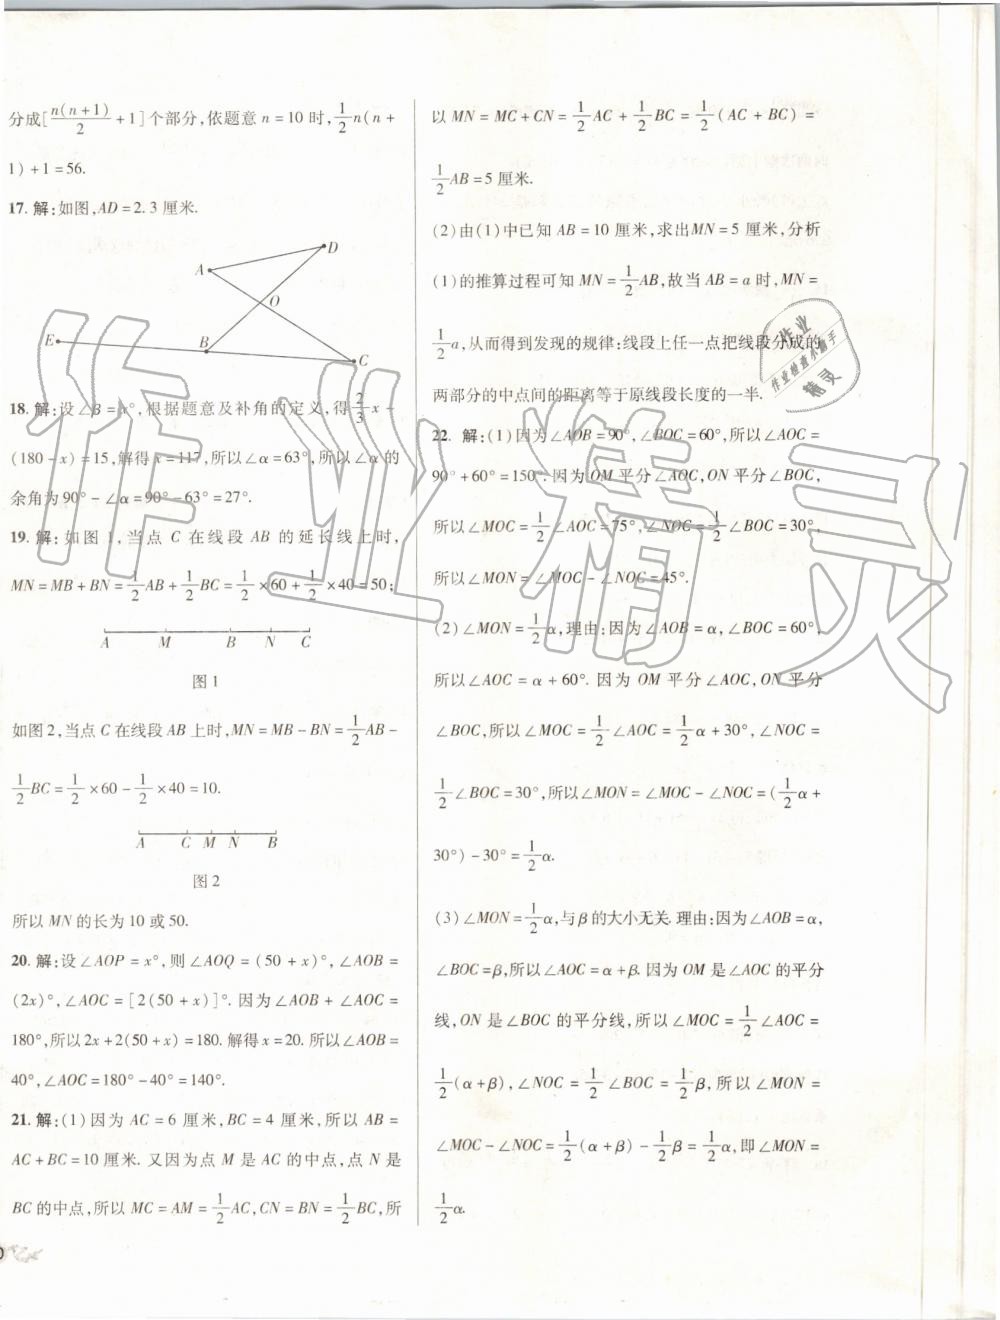 分成[n(n+1)/2 +1]个部分,依题意 n=10 时,1/2 n(n+
1)+1=56.
17. 解:如图,AD=2.3厘米.
D
A
O
E
B
C
18. 解:设∠β=x°,根据题意及补角的定义,得2/3 x-
(180-x)=15,解得x=117,所以∠α=63°,所以∠α的
余角为90°-∠α=90°-63°=27°.
19. 解:如图1,当点 C 在线段 AB 的延长线上时,
MN=MB+BN=1/2 AB+1/2 BC=1/2×60+1/2×40=50;
A M B N C
图1
如图2,当点 C 在线段 AB 上时,MN=MB-BN=1/2 AB-
1/2 BC=1/2×60-1/2×40=10.
A C M N B
图2
所以 MN 的长为10或50.
20. 解:设∠AOP=x°,则∠AOQ=(50+x)°,∠AOB=
(2x)°,∠AOC=[2(50+x)]°.因为∠AOB+∠AOC=
180°,所以2x+2(50+x)=180.解得x=20.所以∠AOB=
40°,∠AOC=180°-40°=140°.
21. 解:(1)因为 AC=6 厘米,BC=4 厘米,所以 AB=
AC+BC=10厘米.又因为点 M 是 AC 的中点,点 N 是
BC 的中点,所以 MC=AM=1/2 AC,CN=BN=1/2 BC,所
以 MN=MC+CN=1/2 AC+1/2 BC=1/2(AC+BC)=
1/2 AB=5厘米.
(2)由(1)中已知 AB=10 厘米,求出MN=5 厘米,分析
(1)的推算过程可知 MN=1/2 AB,故当 AB=a 时,MN=
1/2 a,从而得到发现的规律:线段上任一点把线段分成的
两部分的中点间的距离等于原线段长度的一半.
22. 解:(1)因为∠AOB=90°,∠BOC=60°,所以∠AOC=
90°+60°=150°.因为 OM 平分∠AOC,ON 平分∠BOC,
所以∠MOC=1/2∠AOC=75°,∠NOC=1/2∠BOC=30°,
所以∠MON=∠MOC-∠NOC=45°.
(2)∠MON=1/2 α,理由:因为∠AOB=α,∠BOC=60°,
所以∠AOC=α+60°.因为 OM 平分∠AOC,ON 平分
∠BOC,所以∠MOC=1/2∠AOC=1/2 α+30°,∠NOC=
1/2∠BOC=30°,所以∠MON=∠MOC-∠NOC=(1/2 α+
30°)-30°=1/2 α.
(3)∠MON=1/2 α,与β的大小无关.理由:因为∠AOB=α,
∠BOC=β,所以∠AOC=α+β.因为 OM 是∠AOC 的平分
线,ON 是∠BOC 的平分线,所以∠MOC=1/2∠AOC=
1/2(α+β),∠NOC=1/2∠BOC=1/2 β,所以∠MON=
∠MOC-∠NOC=1/2(α+β)-1/2 β=1/2 α,即∠MON=
1/2 α.
作业精灵
作业
作业检查小助手
精灵